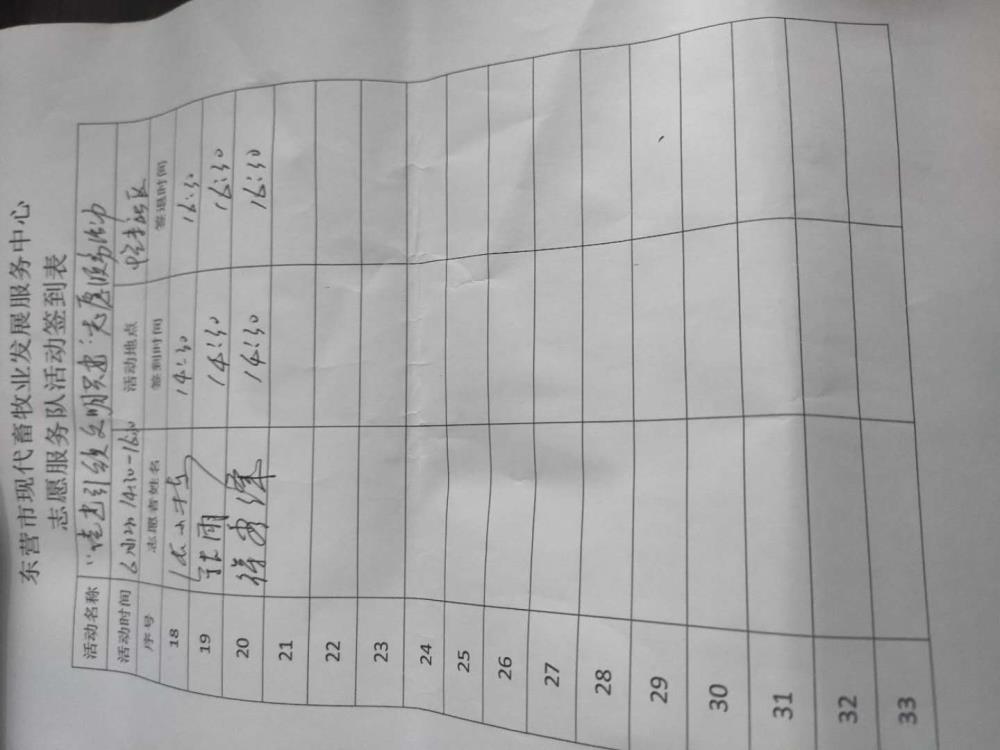 东营市现代畜牧业发展服务中心
志愿服务队活动签到表
活动名称 引领文明 志愿服务活动
活动时间 14:30-16:30 活动地点
序号 志愿者姓名 签到时间 签退时间
18 14:30 16:30
19 张雨 14:30 16:30
20 14:30 16:30
21
22
23
24
25
26
27
28
29
30
31
32
33